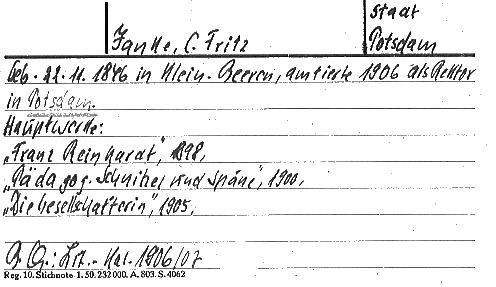 Stadt
Janke, C. Fritz
Potsdam
geb. 22. 11. 1846 in Klein-Beeren, amtierte 1906 als Rektor
in Potsdam.
Hauptwerke:
„Franz Reinhardt", 1898,
„Pädagog. Schnitzel und Späne", 1900,
„Die Gesellschafterin", 1905,
B. Q.: Lit.-Kal. 1906/07
Reg. 10. Stichnote 1. 50. 232000. A. 803. S. 4062